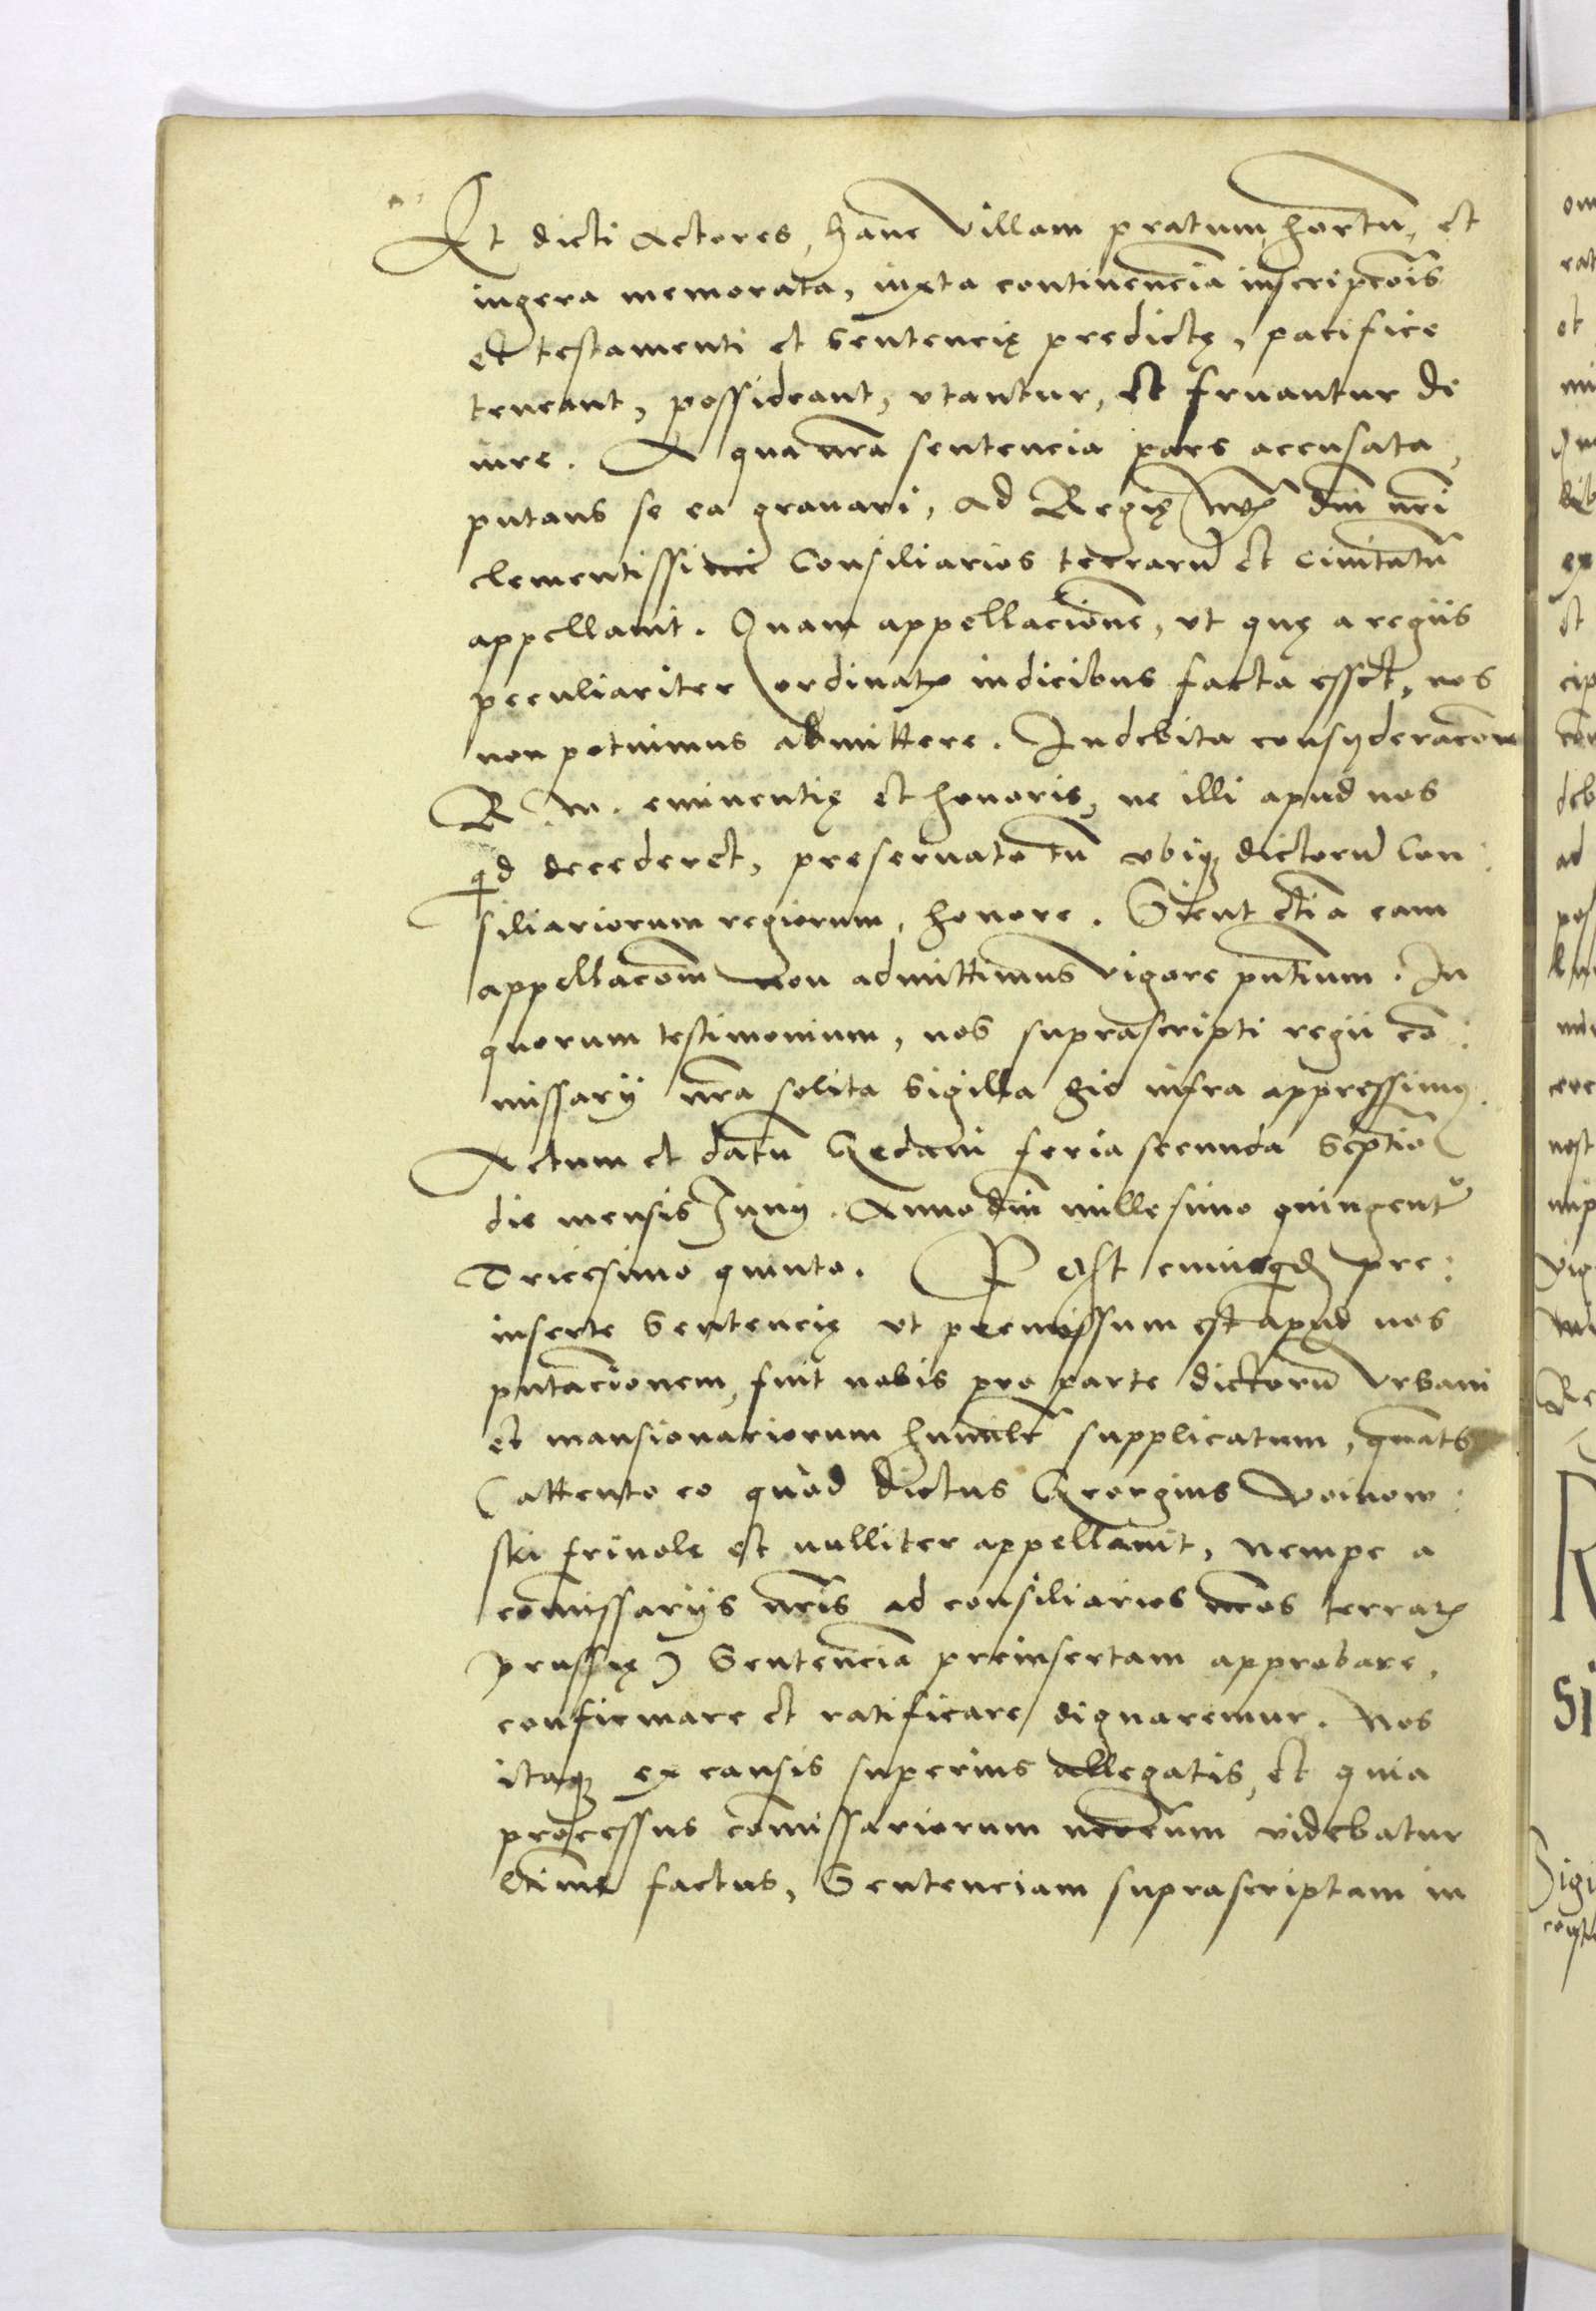 Et dicti Actores, hanc villam pratum, hortu͂, et
iugera memorata, iuxta continencia͂ inscripco͂is
et testamenti et sentencię predictę, pacifice
teneant, possideant, vtantur, et fruantur de
iure. A qua nr͂a sentencia pars accusata,
putans se ea grauari, ad Regię dn͂i nr͂i
clementissimi Consiliarios terraru͂ et ciuitatu͂
appellauit. Quam appellacione͂, vt quę a regiis
peculiariter ordinat iudicibus facta esset, nos
non potuimus admittere. In debita consyderaco͂ne
R M. eminentię et honoris, ne illi apud nos
q͂d decederet, preseruato tn͂ vbiq dictoru͂ Con:
siliariorum regiorum, honore. Sicut etia͂ eam
appellaco͂m non admittimus vigore pn͂tium. In
quorum testimonium, nos suprascripti regii co͂:
missarij nr͂a solita sigilla hic infra appressimus.
Actum et datu͂ Gedani feria secunda septi͂a
die mensis Junij. Anno dn͂i millesimo quingent͂o
Tricesimo quinto. Post cuiusqd pre:
inserte sentencię vt premissum est apud nos
pn͂tacionem, fuit nobis pro parte dictoru͂ Vrbani
et mansionariorum humilr͂ supplicatum, quat͂s
(attento eo quod dictus Georgius Woinow:
ski friuole et nulliter appellauit, nempe a
co͂missarijs nr͂is ad consiliarios nr͂os terrar
prussię) sentencia͂ preinsertam approbare,
confirmare et ratificare dignaremur. Nos
itaq ex causis superius allegatis, et quia
processus co͂missariorum nr͂orum videbatur
factus, Sentenciam suprascriptam in